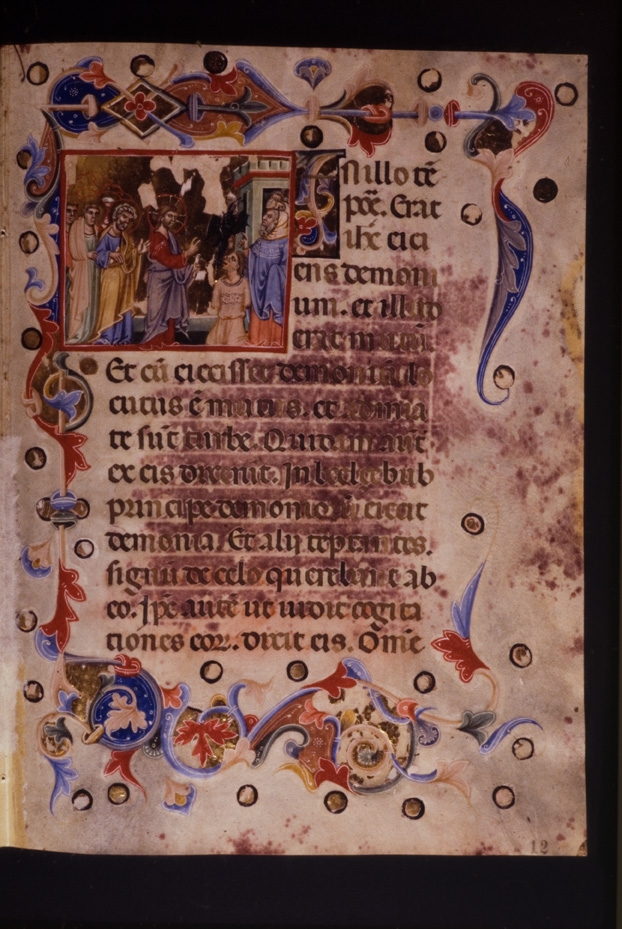 In illo tē
pore. Erat
ihc eici
ens demoni
um. et illud
erat mutū.
Et cū eiecisset demoniū lo
cutus ē mutus. et admira
te sūt turbe. Quidam aut̄
ex eis dixerūt. In beelzebub
principe demonioꝝ eicit
demonia. Et alij teptantes.
signū de celo querebant ab
eo. Ipē autē ut uidit cogita
tiones eoꝝ. dixit eis. Omē
12